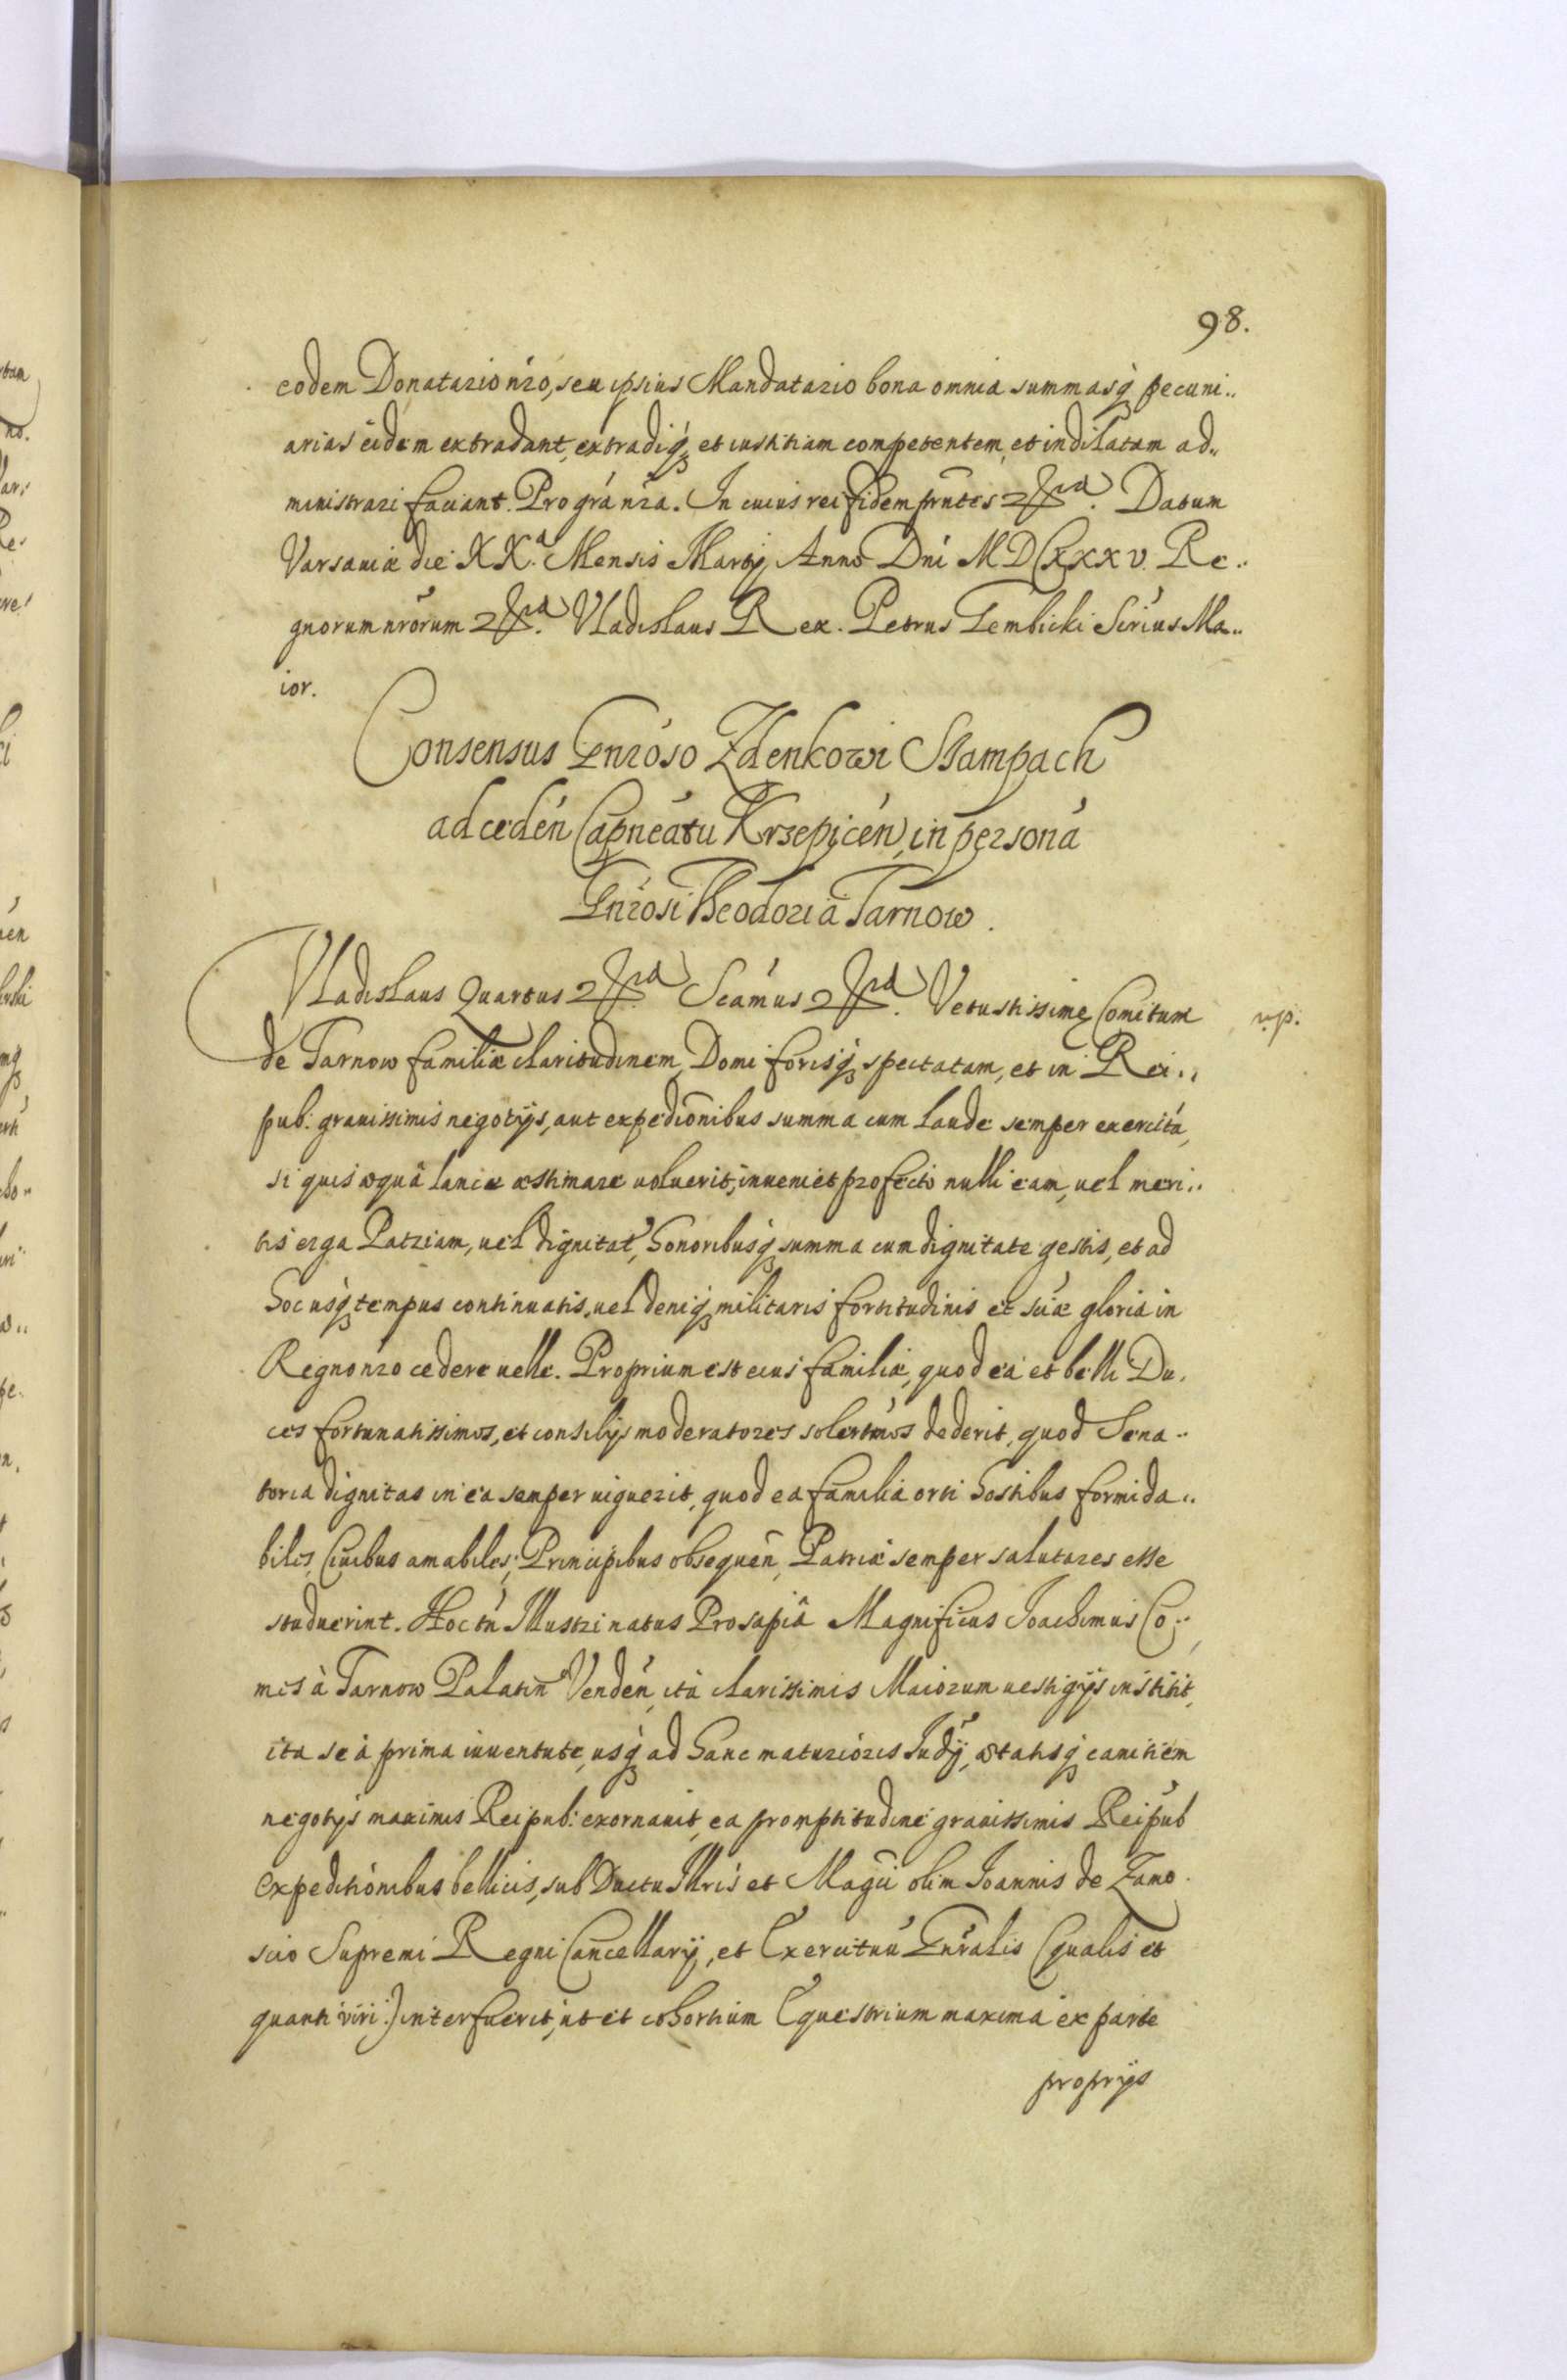 98.
eodem Donatario nro, seu ipsius Mandatario bona omnia summasq̃ pecuni..
arias eidem extradant, extradiq̃, et iustitiam competentem, et indilatam ad..
ministrari faciant. Pro grá nrá. In cuius rei fidem prñtes. Datum
Varsaviæ die XX.ª Mensis Martij Anno Dni MDCXXXV. Re..
gnorum nrorum. Vladislaus Rex. Petrus Gembicki Scrius Ma..
ior.
Consensus Gnroso Zdenkowi Stampach
ad cedén Capneátu Krzepicén, in personá
Gnrosi Theodori à Tarnow.
Vladislaus Quartus Scámus Vetustissimę Comitum
de Tarnow familiæ claritudinem, Domi forisq̃ spectatam, et in Rei..
pub: gravissimis negotijs, aut expedicõnibus summa cum laude semper exercitá,
si quis æquâ lance æstimare voluerit, inveniet profecto nulli eam, vel meri..
tis erga Patriam, vel dignitat, honoribusq̃ summa cum dignitate gestis, et ad
hoc usq̃ tempus continuatis, vel deniq̃ militaris fortitudinis et sciæ gloria in
Regno nro cedere velle. Proprium est eius familiæ, quod ea et belli Du.
ces fortunatissimos, et consilijs moderatores solertmos dederit, quod Sena..
toria dignitas in ea semper viguerit, quod ea familia orti hostibus formida..
biles, Civibus amabiles, Principibus obsequen, Patriæ semper salutares esse
studuerint. Hoc tń Illustri natus Prosapiâ Magnificus Joachimus Co..
mes à Tarnow Palatiñ Vendén, ita clarissimis Maiorum vestigijs institit,
ita se à prima iuventute, usq̃ ad hanc maturioris Judij, ætatisq̃ canitiem
negotijs maximis Reipub: exornavit, ea promptitudine gravissimis Reipub
expeditionibus bellicis, sub Ductu Illris et Magci olim Joannis de Zamo.
scio Supremi Regni Cancellarij, et Exercituú Gnralis (qualis et
quanti viri:) interfuerit, ut et cohortium Equestrium maxima ex parte
proprijs